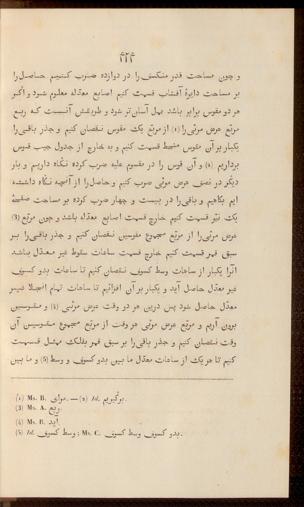 و چون مساحت قدر منکسف را در دوازده ضرب کنیم حاصل را
بر مساحت دایرهٔ آفتاب قسمت کنیم اصابع معدله معلوم شود و اگر
هر دو مقوس برابر باشد بهل آسان‌تر شود و طریقش آنست که ربع
مربّع عرض مرئی را (١) از مربّع یک مقوس نقصان کنیم و جذر باقی را
یکبار بر آن مقوس منحط قسمت کنیم و به خارج از جدول جیب قوس
برداریم (٢) و آن قوس را در مقسوم علیه ضرب کرده نگاه داریم و بار
دیگر در نصف عرض مرئی ضرب کنیم و حاصل را از آنچه نگاه داشته
ایم بکاهیم و باقی را در بیست و چهار ضرب کرده بر مساحت صفحهٔ
یک نیّر قسمت کنیم خارج قسمت اصابع معدّله باشد و چون مربّع (3)
عرض مرئی را از مربّع مجموع مقوسین نقصان کنیم و جذر باقی را بر
سبق قمر قسمت کنیم خارج قسمت ساعات سقوط غیر معدّل باشد
آنرا یکبار از ساعات وسط کسوف نقصان کنیم تا ساعات بدو کسوف
غیر معدّل حاصل آید و یکبار بر آن افزائیم تا ساعات تمام انجلا غیر
معدّل حاصل شود پس درین هر دو وقت عرض مرئی (4) و مقوسین
بیرون آریم و مربّع عرض مرئی هر وقت از مربّع مجموع مقوسین آن
وقت نقصان کنیم و جذر باقی را بر سبق قمر بفلک مپثل قسمت
کنیم تا هر یک از ساعات معدّل ما بین بدو کسوف و وسط (5) و ما بین
(1) Ms. B. مرای. — (2) Id. برگیریم.
(3) Ms. A. ربع.
(4) Ms. B. آید.
(5) Id. وسط کسوف; Ms. C. بدو کسوف وسط کسوف.